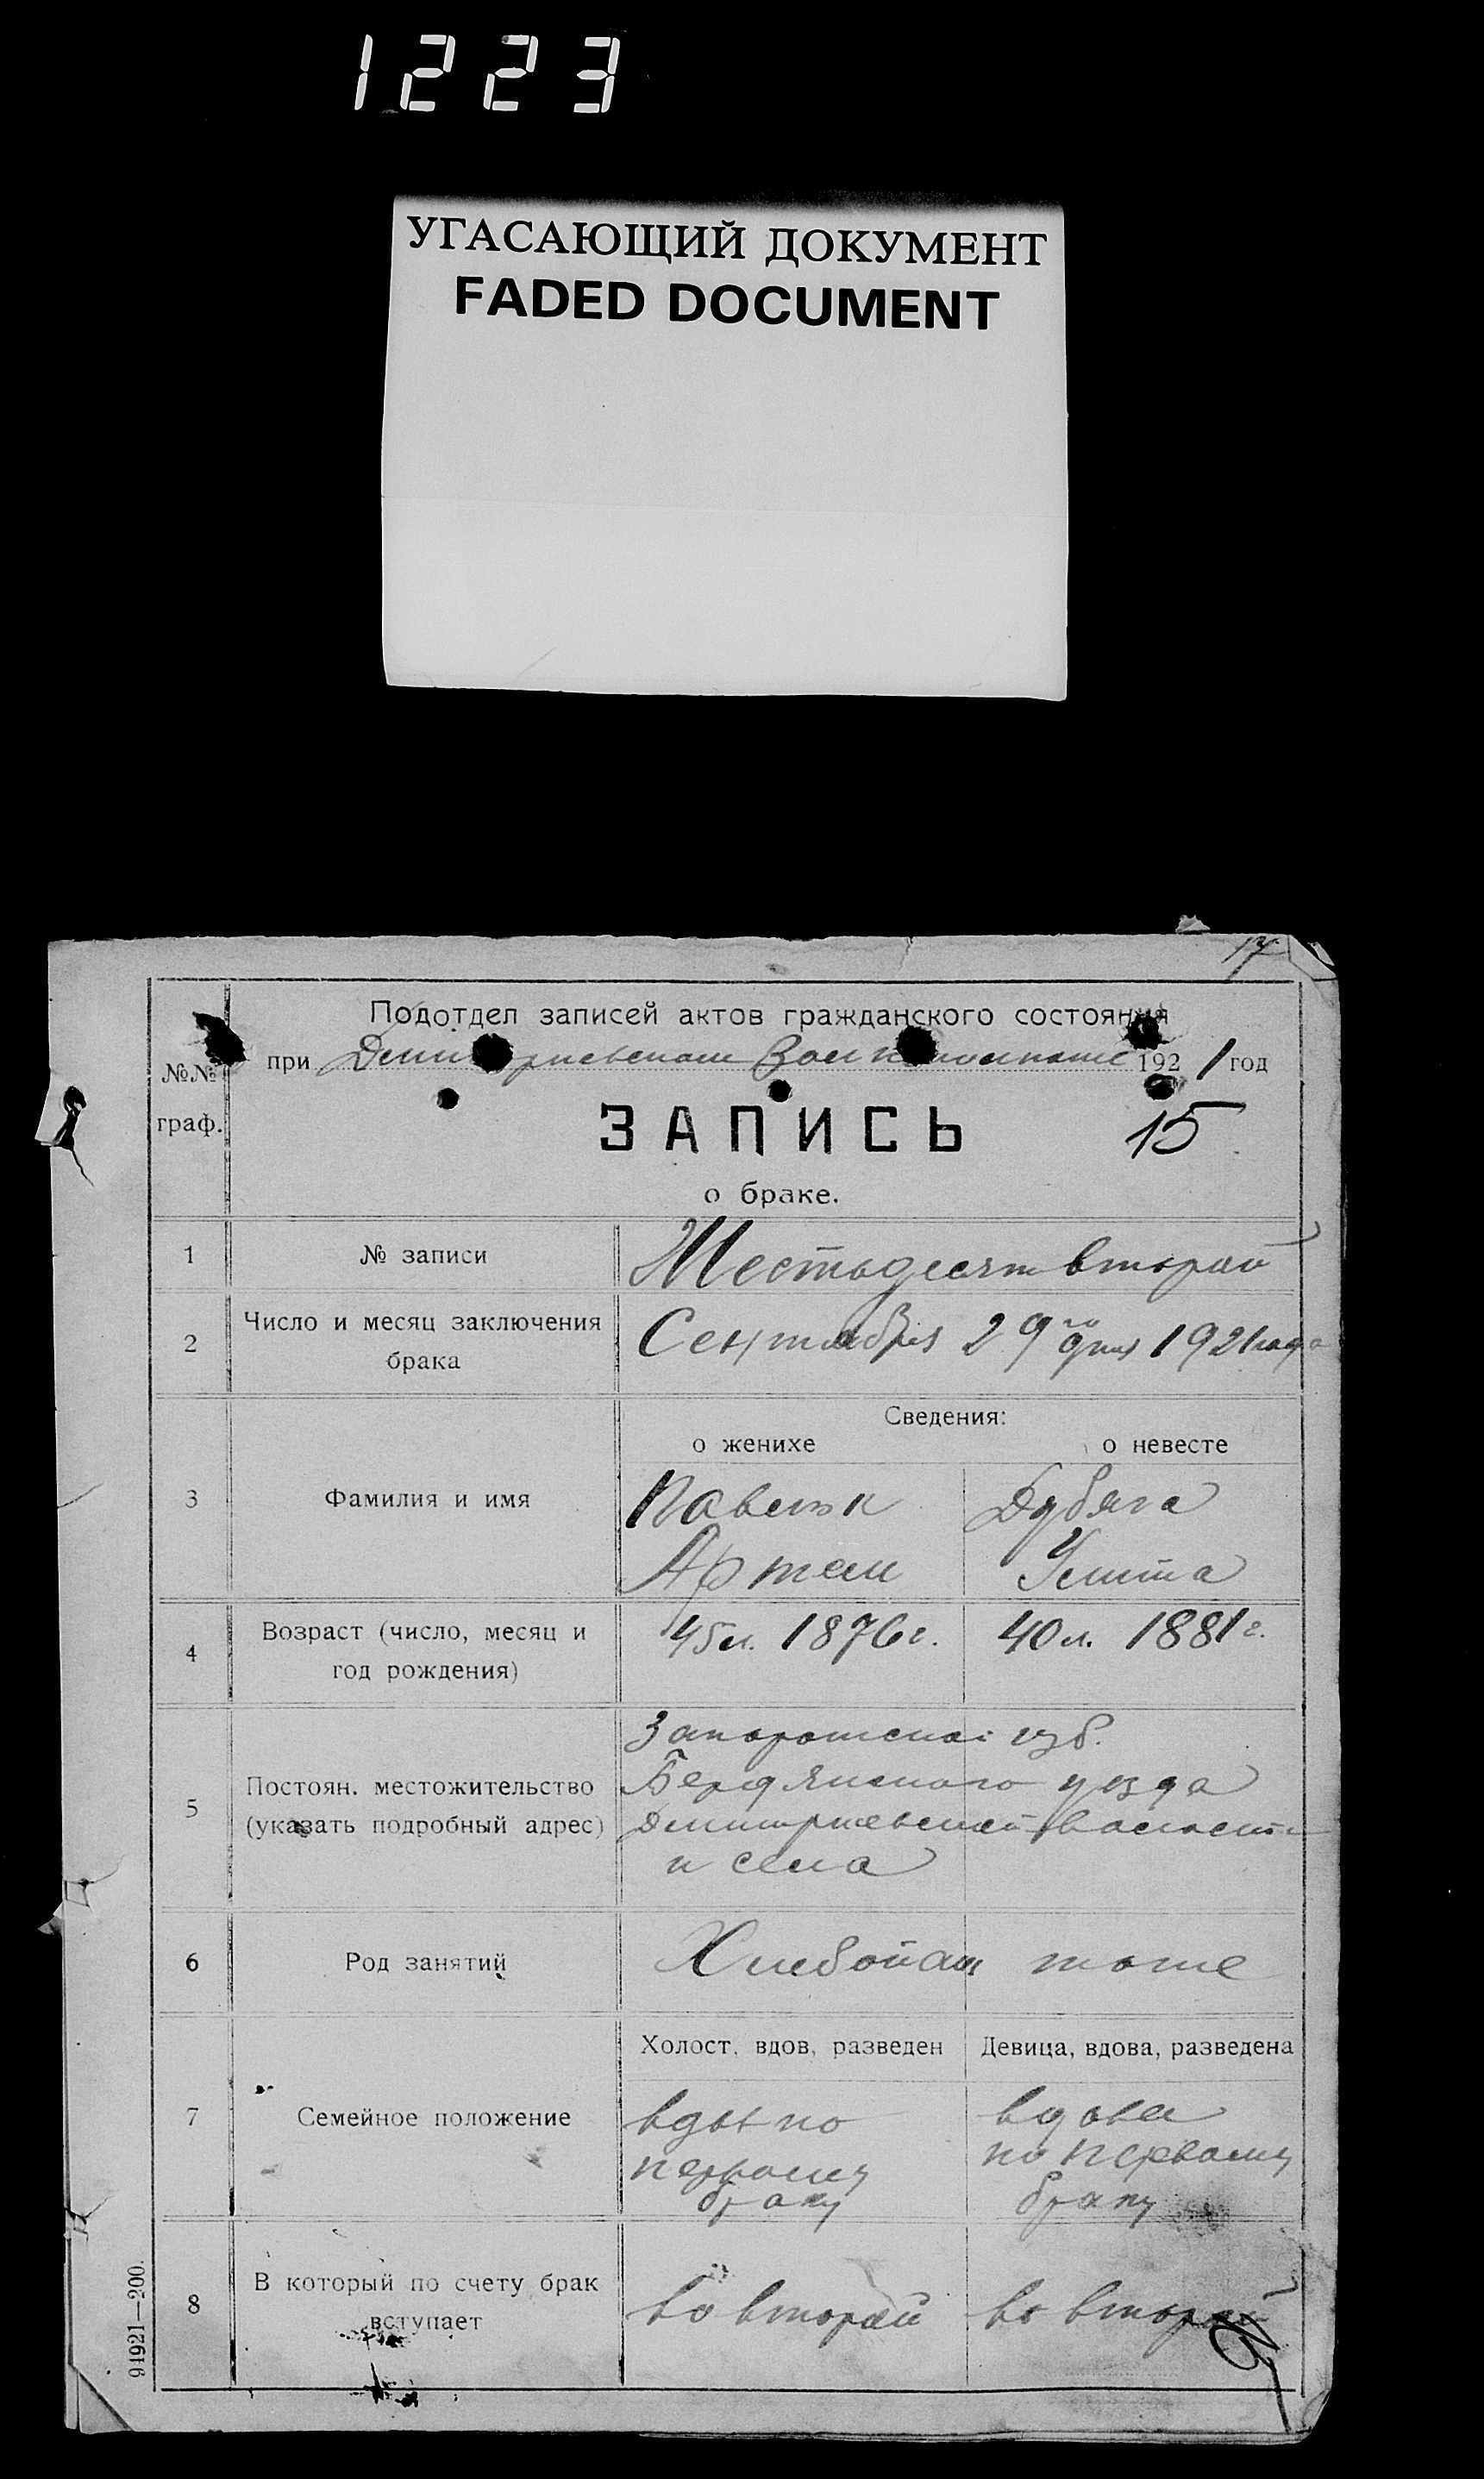 1223
УГАСАЮЩИЙ ДОКУМЕНТ
FADED DOCUMENT
17
Подотдел записей актов гражданского состояния
при 1921 год
№№ граф.
ЗАПИСЬ
15
о браке.
1 № записи Шестьдесят второй
2 Число и месяц заключения брака Сентября 29го дня 1921 года
Сведения:
о женихе о невесте
3 Фамилия и имя
Дубяга
Артем Улита
4 Возраст (число, месяц и год рождения) 45 л. 1876 г. 40 л. 1881 г.
5 Постоян. местожительство (указать подробный адрес) Запорожской губ.
Бердянского уезда
Дмитриевской волости
и села
6 Род занятий Хлебопаш тоже
Холост, вдов, разведен Девица, вдова, разведена
7 Семейное положение
вдов по вдова
первому по первому
браку браку
8 В который по счету брак вступает во второй во второй
91921—200.